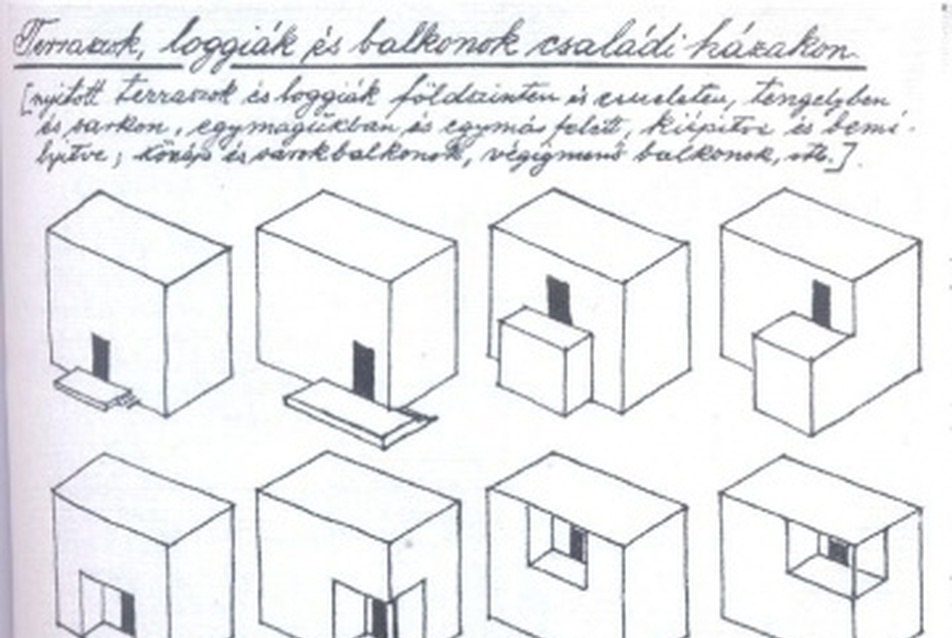 Terraszok, loggiák és balkonok családi házakon.
[nyitott terraszok és loggiák földszinten és emeleten, tengelyben
és sarkon, egymagukban és egymás felett, kiépítve és bemé-
lyítve; közép és sarokbalkonok, végigmenő balkonok, stb.]